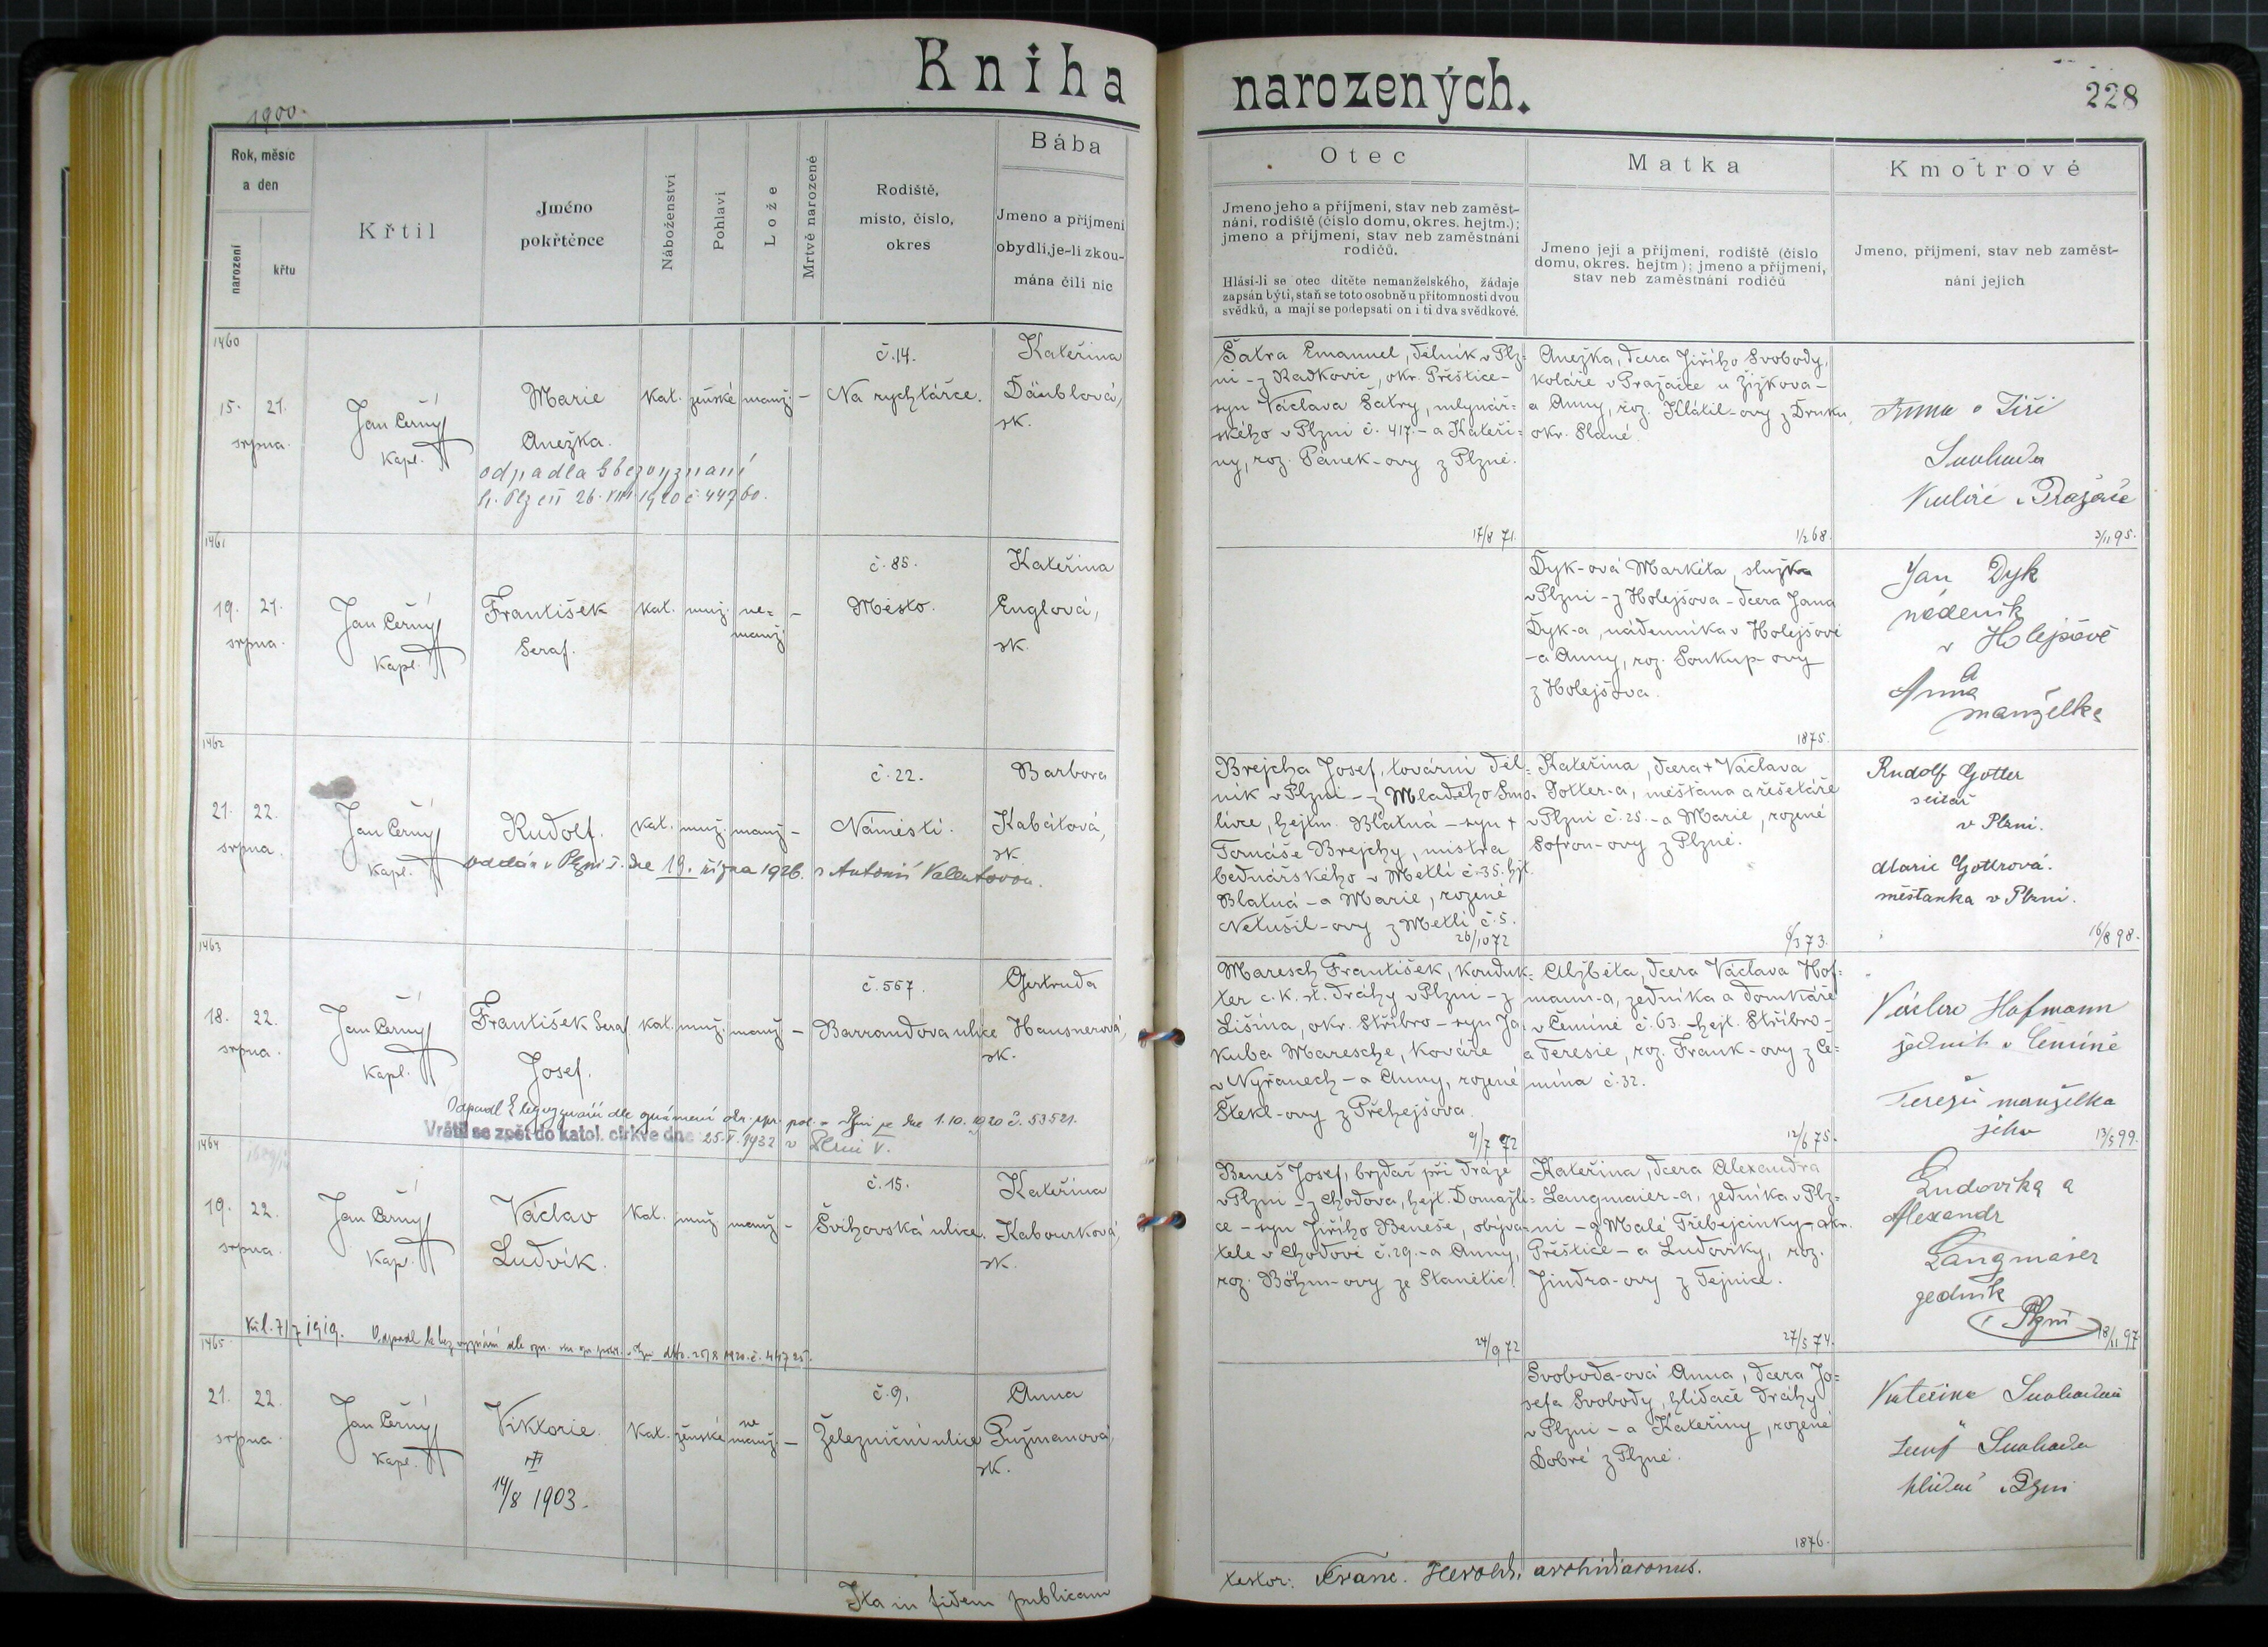 Kniha narozených.
228
1900.
Rok, měsíc
a den
narození
křtu
Křtil
Jméno
pokřtěnce
Náboženství
Pohlaví
Lože
Mrtvě narozené
Rodiště,
místo, číslo,
okres
Bába
Jmeno a příjmení
obydlí, je-li zkou-
mána čili nic
Otec
Jmeno jeho a příjmení, stav neb zaměst-
nání, rodiště (číslo domu, okres. hejtm.);
jmeno a příjmení, stav neb zaměstnání
rodičů.
Hlásí-li se otec dítěte nemanželského, žádaje
zapsán býti, staň se toto osobně u přítomnosti dvou
svědků, a mají se podepsati on i ti dva svědkové.
Matka
Jmeno její a příjmení, rodiště (číslo
domu, okres. hejtm); jmeno a příjmení,
stav neb zaměstnání rodičů
Kmotrové
Jmeno, příjmení, stav neb zaměst-
nání jejich
1460
15. 21.
srpna.
Jan Černý
kapl.
Marie
Anežka.
odpadla k bezvyznání
h. Plzeň 26. VIII 1920 č 44760.
kat. ženské manž. -
č. 14.
Na rychtářce.
Kateřina
Däublová,
zk.
Šatra Emanuel, dělník v Plz-
ni - z Radkovic, okr. Přeštice -
syn Václava Šatry, mlynář-
ského v Plzni č. 417. - a Kateři-
ny, roz. Pánek-ovy z Plzně.
17/8 71.
Anežka, dcera Jiřího Svobody,
koláře v Pražačce u Žižkova -
a Anny, roz. Klátil-ovy z
okr. Slané.
1/2 68.
Anna a Jiří
Svoboda
3/11 95.
1461
19. 21.
srpna.
Jan Černý
kapl.
František
Seraf.
kat. muž. ne-
manž. -
č. 85.
Město.
Kateřina
Englová,
zk.
Dyk-ová Markéta, služka
v Plzni - z Holejšova - dcera Jana
Dyk-a, nádenníka v Holejšově
- a Anny, roz. Soukup-ovy
z Holejšova.
1875.
Jan Dyk
nádeník
v Holejšově
a
Anna
manželka
1462
21. 22.
srpna.
Jan Černý
kapl.
Rudolf.
kat. muž. manž. -
oddán v Plzni I. dne 19. října 1926. s Antonií Valentovou.
č. 22.
Náměstí.
Barbora
Kabátová,
zk.
Brejcha Josef, tovární děl-
ník v Plzni - z Mladého Smo-
livce, hejtm. Blatná - syn †
Tomáše Brejchy, mistra
bednářského v Metli č. 35. hjt.
Blatná - a Marie, rozené
Netušil-ovy z Metli č. 5.
26/10 72
Kateřina, dcera † Václava
Gotter-a, měšťana a řešetáře
v Plzni č. 25. - a Marie, rozené
Sofron-ovy z Plzně.
6/3 73.
Rudolf Gotter
sítař
v Plzni.
Marie Gottrová.
měšťanka v Plzni.
16/8 98.
1463
18. 22.
srpna.
Jan Černý
kapl.
František Seraf
Josef.
kat. muž. manž. -
Odpadl k bezvyznání dle oznámení okr. spr. pol. v Plzni ze dne 1. 10. 1920 č. 53521.
Vrátil se zpět do katol. církve dne 25. V. 1932 v Plzni V.
č. 557.
Barrandova ulice
Gertruda
Hausnerová,
zk.
Maresch František, konduk-
ter c. k. st. dráhy v Plzni - z
Lišina, okr. Stříbro - syn Ja-
kuba Maresche, kováře
v Nyřanech - a Anny, rozené
Štekl-ovy z Přehejšova.
9/7 72
Alžběta, dcera Václava Hof-
mann-a, zedníka a domkáře
v Čemíně č. 63. hejt. Stříbro -
a Teresie, roz. Frank-ovy z Če-
mína č. 32.
12/6 75.
Václav Hofmann
zedník v Čemíně
Terezie manželka
jeho
13/5 99.
1464
19. 22.
srpna.
Jan Černý
kapl.
Václav
Ludvík.
kat. muž manž. -
7/7 1919. Odpadl k bez vyznání dle 25/8 1920. č. 44725.
č. 15.
Švihovská ulice.
Kateřina
Kabourková,
zk.
Beneš Josef, brzdař při dráze
v Plzni - z Chodova, hejt. Domažli-
ce - syn Jiřího Beneše, obýva-
tele v Chodově č. 29. - a Anny,
roz. Böhm-ovy ze Stanětic.
24/9 72
Kateřina, dcera Alexandra
Langmaier-a, zedníka v Plz-
ni - z Malé Třebejcinky - okr.
Přeštice - a Ludoviky, roz.
Jindra-ovy z Týnice.
27/5 74.
Ludovika a
Alexandr
Langmáier
zedník
v Plzni
18/11 97
1465
21. 22.
srpna.
Jan Černý
kapl.
Viktorie.
14/8 1903.
kat. ženské ne
manž. -
č. 9.
Železniční ulice
Anna
Pužmanová,
zk.
Svoboda-ová Anna, dcera Jo-
sefa Svobody, hlídače dráhy
v Plzni - a Kateřiny, rozené
Dobré z Plzně.
1876.
Kateřina Svobodová
Josef Svoboda
hlídač v Plzni
Ita in fidem publicam
testor: Franc. Herold, archidiaconus.